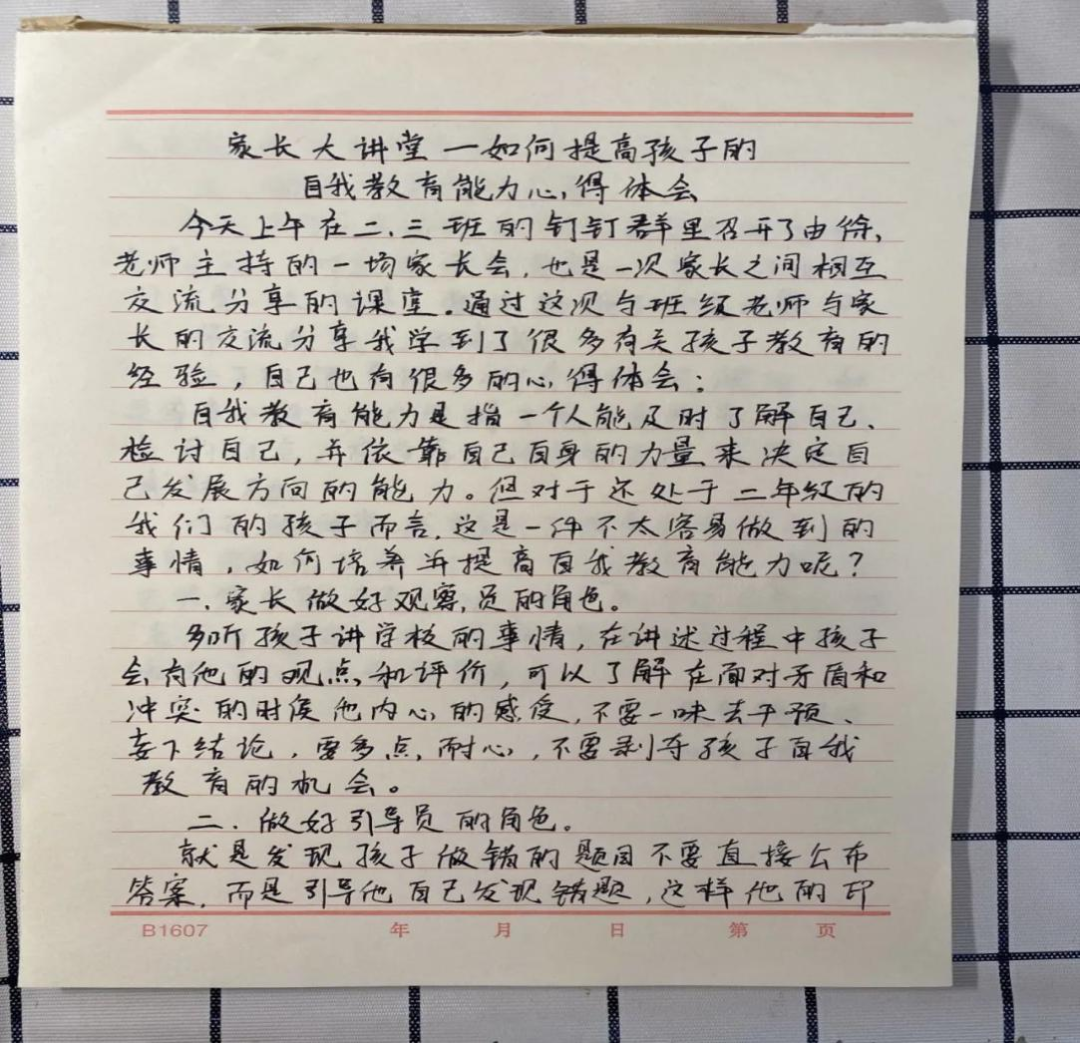 家长大讲堂—如何提高孩子的
自我教育能力心得体会
今天上午在二.三班的钉钉群里召开了由徐
老师主持的一场家长会，也是一次家长之间相互
交流分享的课堂。通过这次与班级老师与家
长的交流分享我学到了很多有关孩子教育的
经验，自己也有很多的心得体会：
自我教育能力是指一个人能及时了解自己、
检讨自己，并依靠自己自身的力量来决定自
己发展方向的能力。但对于还处于二年级的
我们的孩子而言，这是一件不太容易做到的
事情，如何培养并提高自我教育能力呢？
一.家长做好观察员的角色。
多听孩子讲学校的事情，在讲述过程中孩子
会有他的观点和评价，可以了解在面对矛盾和
冲突的时候他内心的感受，不要一味去干预、
妄下结论，要多点耐心，不要剥夺孩子自我
教育的机会。
二.做好引导员的角色。
就是发现孩子做错的题目不要直接公布
答案，而是引导他自己发现错题，这样他的印
B1607 年 月 日 第 页